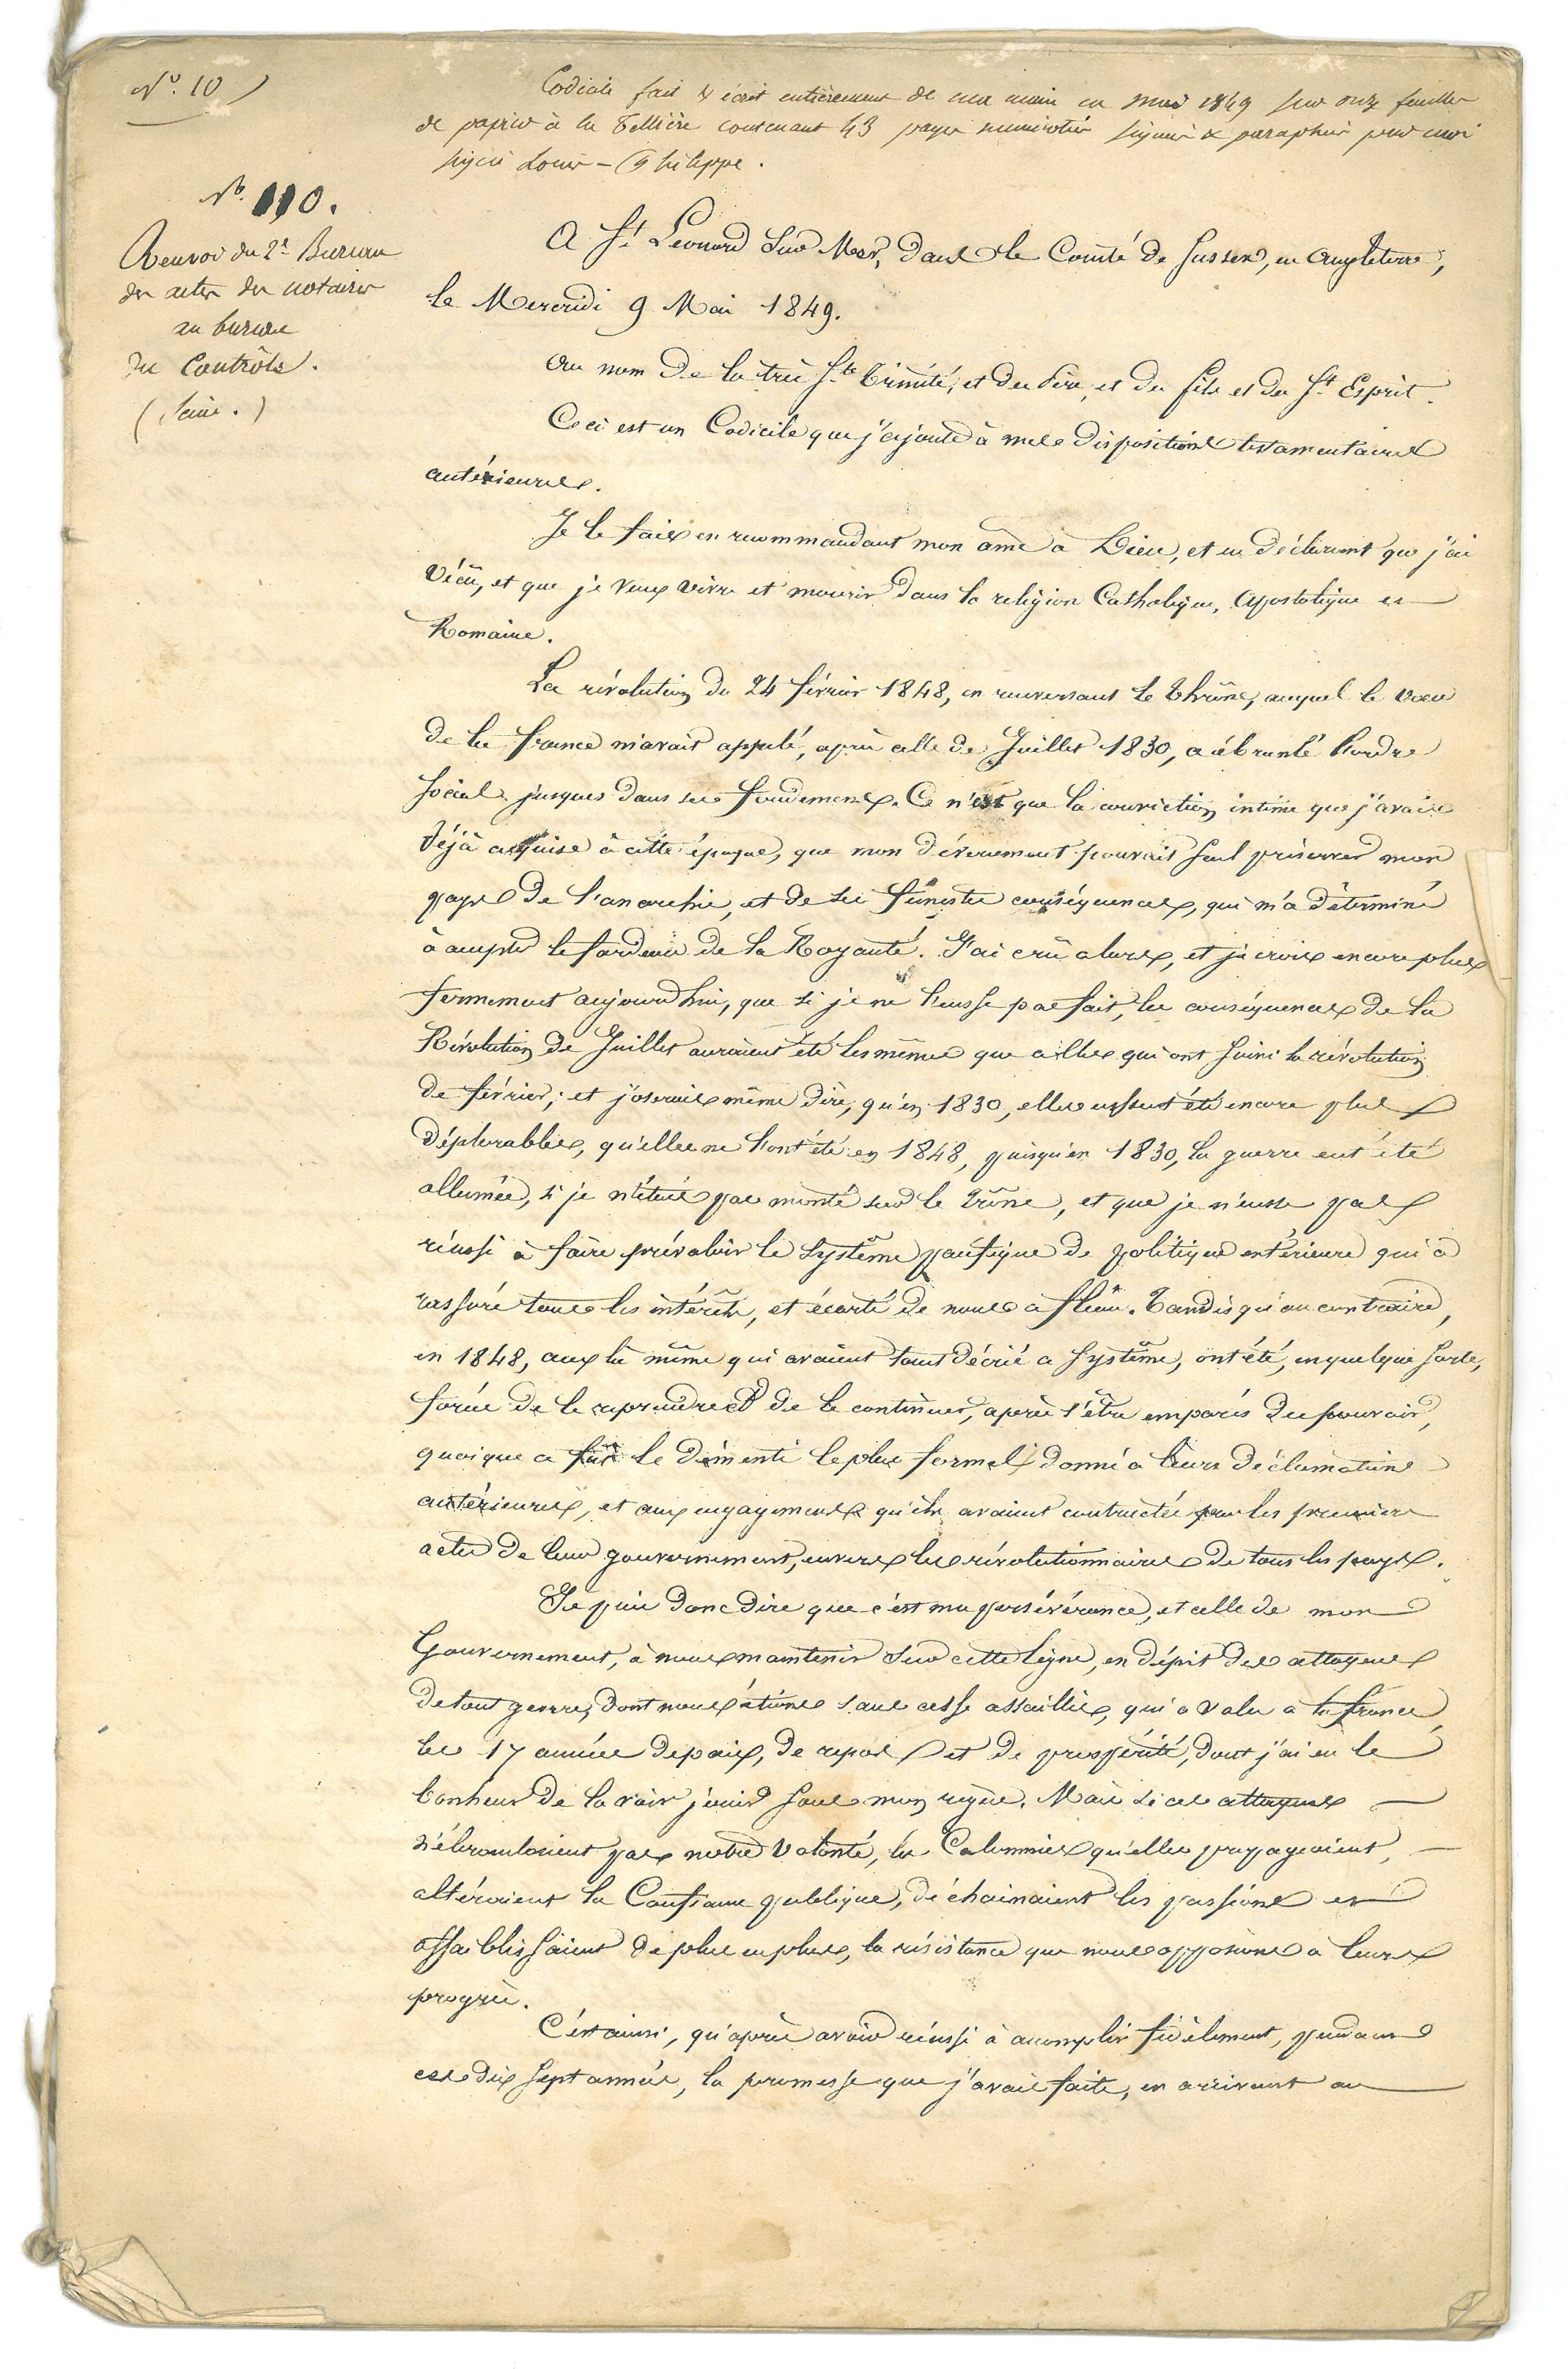 N.° 10
Codicile fait & écrit entièrement de ma main en mai 1849 sur onze feuilles
de papier à la Tellière contenant 43 pages numérotées signées & paraphées par moi
signé Louis-Philippe.
N.° 110.
Renvoi du 2e Bureau
des actes des notaires
au bureau
du Contrôle.
(Seine.)
A St Leonard sur Mer, dans le Comté de Sussex, en Angleterre,
le Mercredi 9 Mai 1849.
Au nom de la très Ste Trinité, et du Père, et du fils et du St Esprit.
Ceci est un Codicile que j'ajoute à mes dispositions testamentaires
antérieures.
Je le fais en recommandant mon âme à Dieu, et en déclarant que j'ai
vécu, et que je veux vivre et mourir dans la religion Catholique, Apostolique et
Romaine.
La révolution du 24 février 1848, en renversant le Thrône, auquel le voeu
de la france m'avait appelé, après celle de Juillet 1830, a ébranlé l'ordre
social jusques dans ses fondemens. Ce n'est que la conviction intime que j'avais
déjà acquise à cette époque, que mon dévouement pouvait seul préserver mon
pays de l'anarchie, et de ses funestes conséquences, qui m'a déterminé
à accepter le fardeau de la Royauté. J'ai crû alors, et je crois encore plus
fermement aujourd'hui, que si je ne l'eusse pas fait, les conséquences de la
Révolution de Juillet auraient été les mêmes que celles qui ont suivi la révolution
de février; et j'oserais même dire, qu'en 1830, elles eussent été encore plus
déplorables, qu'elles ne l'ont été en 1848, puisqu'en 1830, la guerre eut été
allumée, si je n'étais pas monté sur le Trône, et que je n'eusse pas
réussi à faire prévaloir le système pacifique de politique extérieure qui a
rassuré tous les intérêts, et écarté de nous ce fléau. Tandis qu'au contraire,
en 1848, ceux là même qui avaient tant décrié ce système, ont été, en quelque sorte,
forcés de le reprendre et de le continuer, après s'être emparés du pouvoir,
quoique ce fut le démenti le plus formel donné à leurs déclamations
antérieures, et aux engagemens qu'ils avaient contractés par les premiers
actes de leur gouvernement, envers les révolutionnaires de tous les pays.
Je puis donc dire que c'est ma persévérance, et celle de mon
Gouvernement, à nous maintenir sur cette ligne, en dépit des attaques
de tout genre, dont nous étions sans cesse assaillis, qui a valu à la france,
les 17 années de paix, de repos et de prospérité, dont j'ai eu le
bonheur de la voir jouir sous mon règne. Mais si ces attaques
n'ébranlaient pas notre volonté, les Calomnies qu'elles propageaient,
altéraient la Confiance publique, déchainaient les passions et
affaiblissaient de plus en plus, la résistance que nous opposions à leurs
progrès.
C'est ainsi, qu'après avoir réussi à accomplir fidèlement, pendant
ces dix sept années, la promesse que j'avais faite, en arrivant au